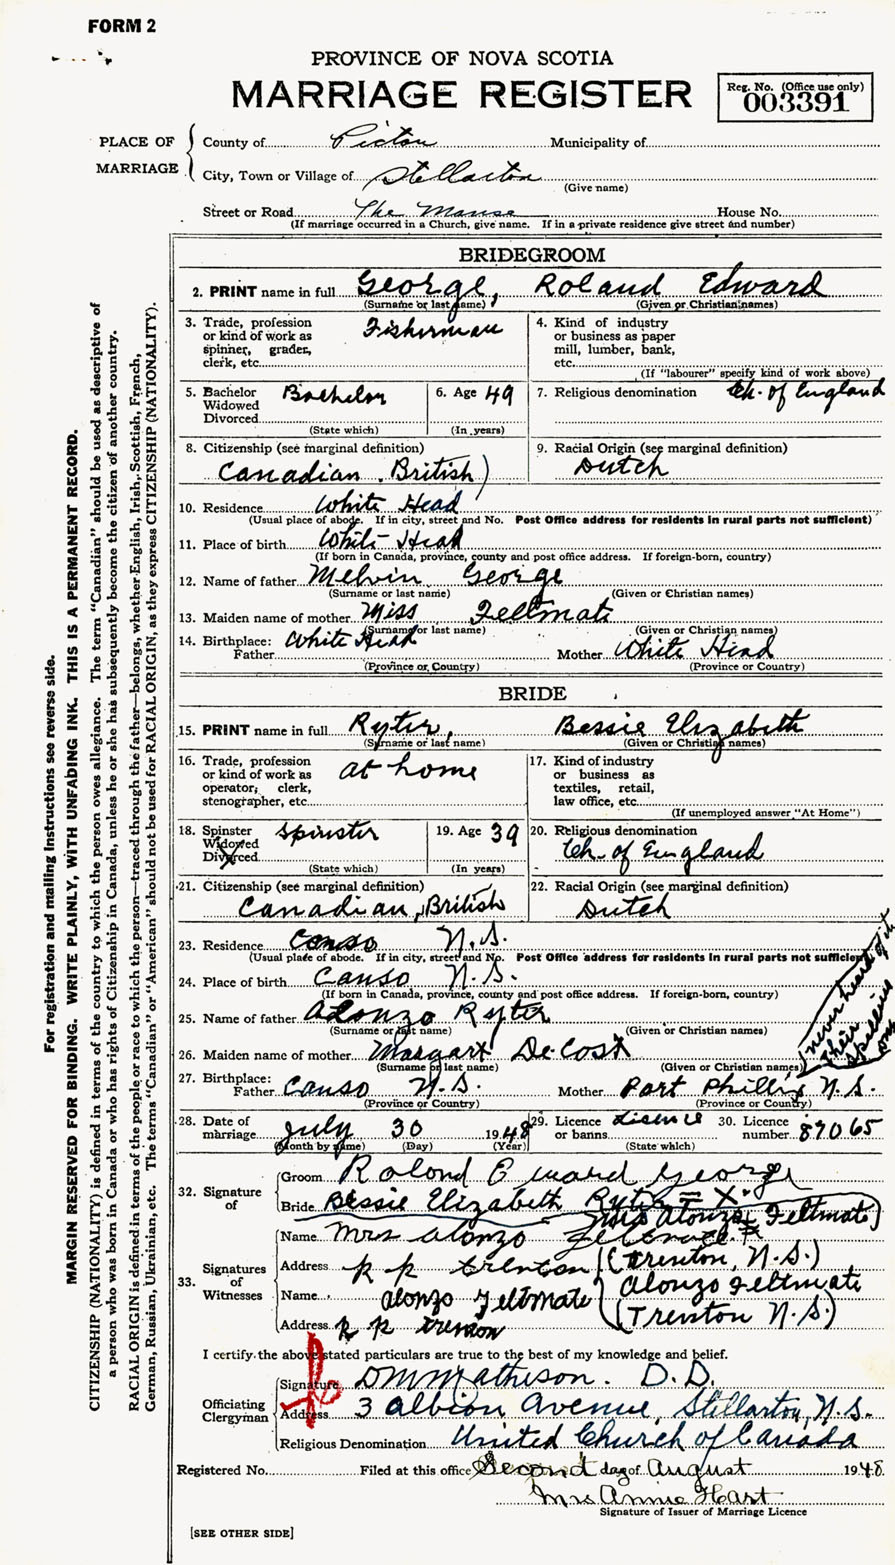 FORM 2
PROVINCE OF NOVA SCOTIA
MARRIAGE REGISTER
Reg. No. (Office use only)
003391
PLACE OF MARRIAGE
County of Pictou Municipality of
City, Town or Village of Stellarton
(Give name)
Street or Road The Manse House No.
(If marriage occurred in a Church, give name. If in a private residence give street and number)
BRIDEGROOM
2. PRINT name in full George, Roland Edward
(Surname or last name) (Given or Christian names)
3. Trade, profession or kind of work as spinner, grader, clerk, etc. Fisherman
4. Kind of industry or business as paper mill, lumber, bank, etc.
(If "labourer" specify kind of work above)
5. Bachelor Widowed Divorced Bachelor
(State which)
6. Age 49
(In years)
7. Religious denomination Ch. of England
8. Citizenship (see marginal definition)
Canadian British)
9. Racial Origin (see marginal definition)
Dutch
10. Residence White Head
(Usual place of abode. If in city, street and No. Post Office address for residents in rural parts not sufficient)
11. Place of birth White Head
(If born in Canada, province, county and post office address. If foreign-born, country)
12. Name of father Melvin George
(Surname or last name) (Given or Christian names)
13. Maiden name of mother Miss Feltmate
(Surname or last name) (Given or Christian names)
14. Birthplace: Father White Head Mother White Head
(Province or Country) (Province or Country)
BRIDE
15. PRINT name in full Ryter, Bessie Elizabeth
(Surname or last name) (Given or Christian names)
16. Trade, profession or kind of work as operator, clerk, stenographer, etc. at home
17. Kind of industry or business as textiles, retail, law office, etc.
(If unemployed answer "At Home")
18. Spinster Widowed Divorced Spinster
(State which)
19. Age 39
(In years)
20. Religious denomination
Ch. of England
21. Citizenship (see marginal definition)
Canadian, British
22. Racial Origin (see marginal definition)
Dutch
23. Residence Canso N.S.
(Usual place of abode. If in city, street and No. Post Office address for residents in rural parts not sufficient)
24. Place of birth Canso N.S.
(If born in Canada, province, county and post office address. If foreign-born, country)
25. Name of father Alonzo Ryter
(Surname or last name) (Given or Christian names)
26. Maiden name of mother Margart De Cost
(Surname or last name) (Given or Christian names)
never heard of it
Their spelling
27. Birthplace: Father Canso N.S. Mother Port Phillip N.S.
(Province or Country) (Province or Country)
28. Date of marriage July 30 1948
(Month by name) (Day) (Year)
29. Licence or banns Lisence
(State which)
30. Licence number 87065
32. Signature of
Groom Roland Edward George
Bride Bessie Elizabeth Ryter = X.
Mrs Alonzo Feltmate)
33. Signatures of Witnesses
Name Mrs Alonzo Feltmate
Address R R Trenton (Trenton, N.S.)
Name Alonzo Feltmate Alonzo Feltmate
Address R R Trenton (Trenton N.S.)
I certify the above stated particulars are true to the best of my knowledge and belief.
Officiating Clergyman
Signature D M Matheson. D.D.
Address 3 Albion Avenue, Stellarton, N.S.
Religious Denomination United Church of Canada
Registered No. Filed at this office Second day of August 1948.
Mrs Annie Hart
Signature of Issuer of Marriage Licence
[SEE OTHER SIDE]
For registration and mailing instructions see reverse side.
MARGIN RESERVED FOR BINDING. WRITE PLAINLY, WITH UNFADING INK. THIS IS A PERMANENT RECORD.
CITIZENSHIP (NATIONALITY) is defined in terms of the country to which the person owes allegiance. The term "Canadian" should be used as descriptive of
a person who was born in Canada or who has rights of Citizenship in Canada, unless he or she has subsequently become the citizen of another country.
RACIAL ORIGIN is defined in terms of the people or race to which the person—traced through the father—belongs, whether English, Irish, Scottish, French,
German, Russian, Ukrainian, etc. The terms "Canadian" or "American" should not be used for RACIAL ORIGIN, as they express CITIZENSHIP (NATIONALITY).